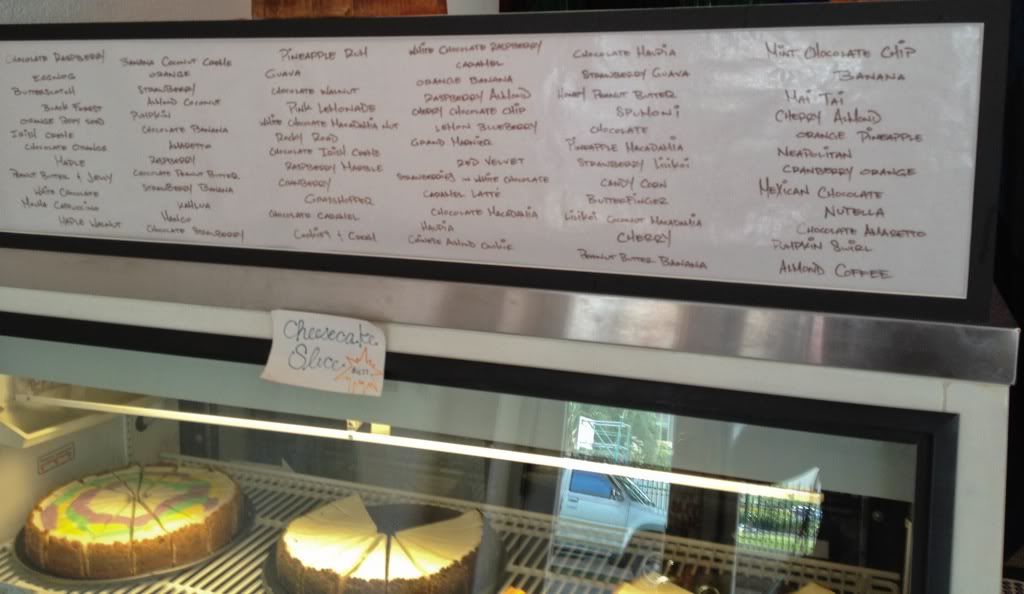 CHOCOLATE RASPBERRY
EGGNOG
BUTTERSCOTCH
BLACK FOREST
ORANGE POPPY SEED
IRISH CREME
CHOCOLATE ORANGE
MAPLE
PEANUT BUTTER & JELLY
WHITE CHOCOLATE
MOCHA CAPPUCCINO
MAPLE WALNUT
BANANA COCONUT CREME
ORANGE
STRAWBERRY
ALMOND COCONUT
PUMPKIN
CHOCOLATE BANANA
AMARETTO
RASPBERRY
CHOCOLATE PEANUT BUTTER
STRAWBERRY BANANA
KAHLUA
MANGO
CHOCOLATE STRAWBERRY
PINEAPPLE RUM
GUAVA
CHOCOLATE WALNUT
PINK LEMONADE
WHITE CHOCOLATE MACADAMIA NUT
ROCKY ROAD
CHOCOLATE IRISH CREME
RASPBERRY MARBLE
CRANBERRY
GRASSHOPPER
CHOCOLATE CARAMEL
COOKIES & CREAM
WHITE CHOCOLATE RASPBERRY
CARAMEL
ORANGE BANANA
RASPBERRY ALMOND
CHERRY CHOCOLATE CHIP
LEMON BLUEBERRY
GRAND MARNIER
RED VELVET
STRAWBERRIES IN WHITE CHOCOLATE
CARAMEL LATTÉ
CHOCOLATE MACADAMIA
HAUPIA
CHINESE ALMOND COOKIE
CHOCOLATE HAUPIA
STRAWBERRY GUAVA
HONEY PEANUT BUTTER
SPUMONI
CHOCOLATE
PINEAPPLE MACADAMIA
STRAWBERRY LILIKOI
CANDY CORN
BUTTERFINGER
LILIKOI COCONUT MACADAMIA
CHERRY
PEANUT BUTTER BANANA
MINT CHOCOLATE CHIP
BANANA
MAI TAI
CHERRY ALMOND
ORANGE PINEAPPLE
NEAPOLITAN
CRANBERRY ORANGE
MEXICAN CHOCOLATE
NUTELLA
CHOCOLATE AMARETTO
PUMPKIN SWIRL
ALMOND COFFEE
Cheesecake
Slice